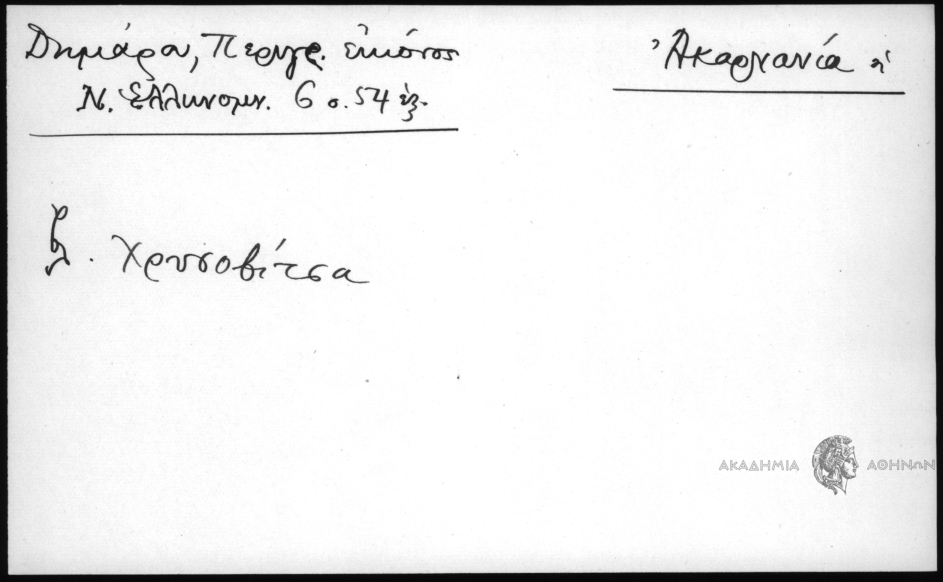 Δημάρου, Περιγρ. εἰκόνος
Ν. Ἑλληνομν. 6 σ. 54 ἑξ.
Ἀκαρνανία ἡ
βλ. Χρυσοβίτσα
ΑΚΑΔΗΜΙΑ ΑΘΗΝΩΝ